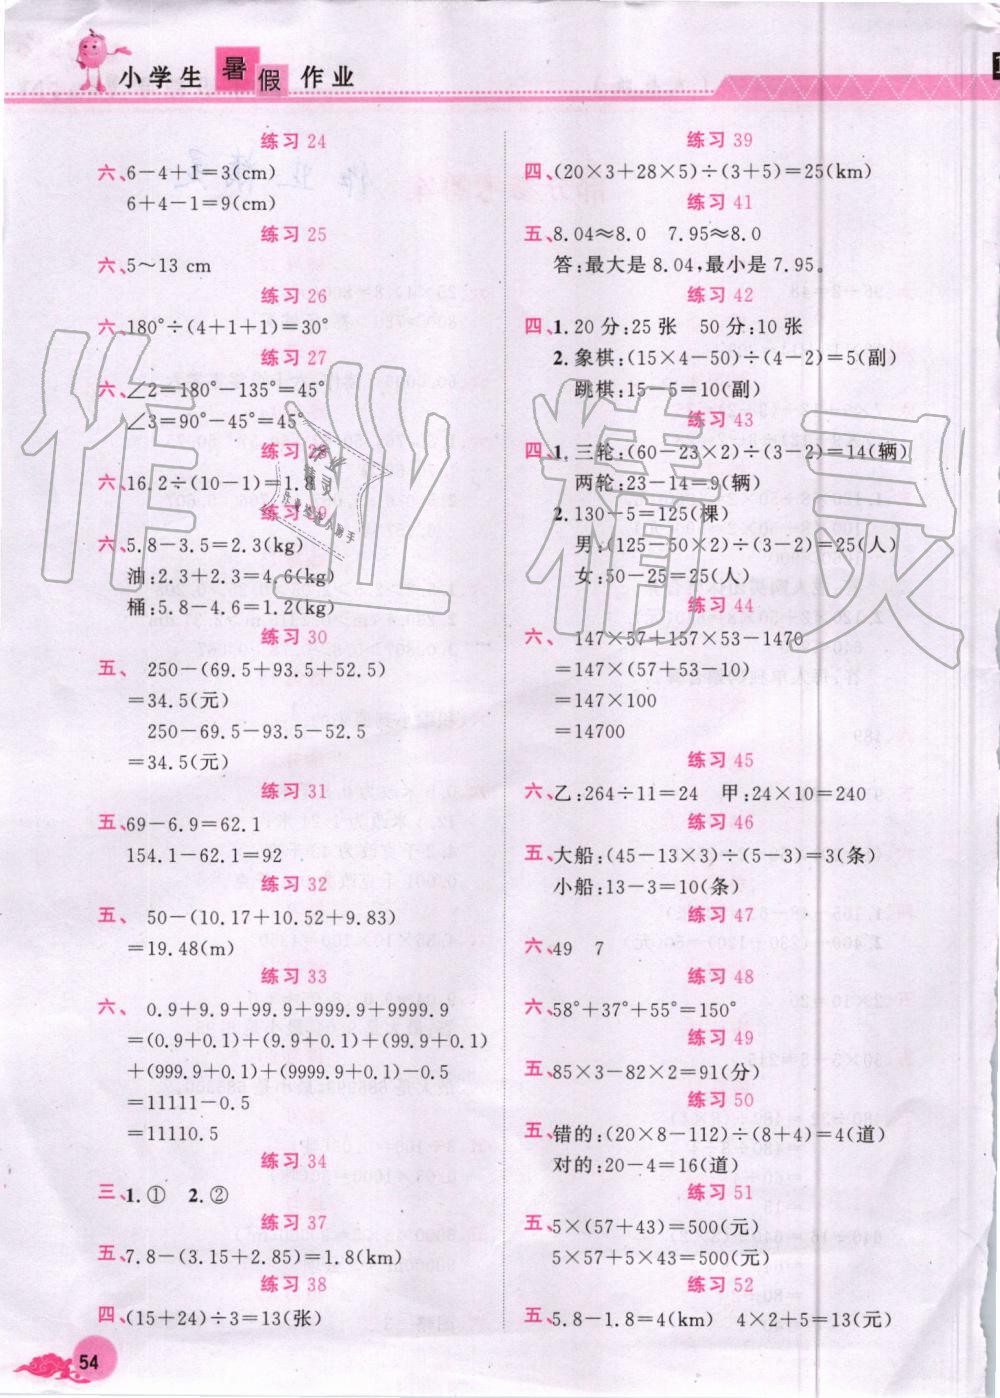 小学生暑假作业
练习 24
六、6－4＋1＝3(cm)
6＋4－1＝9(cm)
练习 25
六、5～13 cm
练习 26
六、180°÷(4＋1＋1)＝30°
练习 27
六、∠2＝180°－135°＝45°
∠3＝90°－45°＝45°
练习 28
六、16.2÷(10－1)＝1.8
练习 29
六、5.8－3.5＝2.3(kg)
油:2.3＋2.3＝4.6(kg)
桶:5.8－4.6＝1.2(kg)
练习 30
五、 250－(69.5＋93.5＋52.5)
＝34.5(元)
250－69.5－93.5－52.5
＝34.5(元)
练习 31
五、69－6.9＝62.1
154.1－62.1＝92
练习 32
五、 50－(10.17＋10.52＋9.83)
＝19.48(m)
练习 33
六、 0.9＋9.9＋99.9＋999.9＋9999.9
＝(0.9＋0.1)＋(9.9＋0.1)＋(99.9＋0.1)
＋(999.9＋0.1)＋(9999.9＋0.1)－0.5
＝11111－0.5
＝11110.5
练习 34
三、1.① 2.②
练习 37
五、7.8－(3.15＋2.85)＝1.8(km)
练习 38
四、(15＋24)÷3＝13(张)
练习 39
四、(20×3＋28×5)÷(3＋5)＝25(km)
练习 41
五、8.04≈8.0 7.95≈8.0
答:最大是 8.04,最小是 7.95。
练习 42
四、1.20 分:25 张 50 分:10 张
2.象棋:(15×4－50)÷(4－2)＝5(副)
跳棋:15－5＝10(副)
练习 43
四、1.三轮:(60－23×2)÷(3－2)＝14(辆)
两轮:23－14＝9(辆)
2.130－5＝125(棵)
男:(125－50×2)÷(3－2)＝25(人)
女:50－25＝25(人)
练习 44
六、 147×57＋157×53－1470
＝147×(57＋53－10)
＝147×100
＝14700
练习 45
六、乙:264÷11＝24 甲:24×10＝240
练习 46
五、大船:(45－13×3)÷(5－3)＝3(条)
小船:13－3＝10(条)
练习 47
六、49 7
练习 48
六、58°＋37°＋55°＝150°
练习 49
五、85×3－82×2＝91(分)
练习 50
五、错的:(20×8－112)÷(8＋4)＝4(道)
对的:20－4＝16(道)
练习 51
五、5×(57＋43)＝500(元)
5×57＋5×43＝500(元)
练习 52
五、5.8－1.8＝4(km) 4×2＋5＝13(元)
54
作业精灵